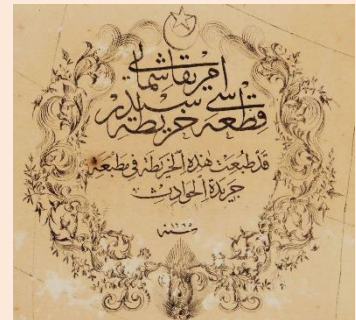 امریقا شمالی
قطعه سی خریطه سیدر
قد طبعت هذه الخريطة فى مطبعة
جريدة الحوادث
سنه